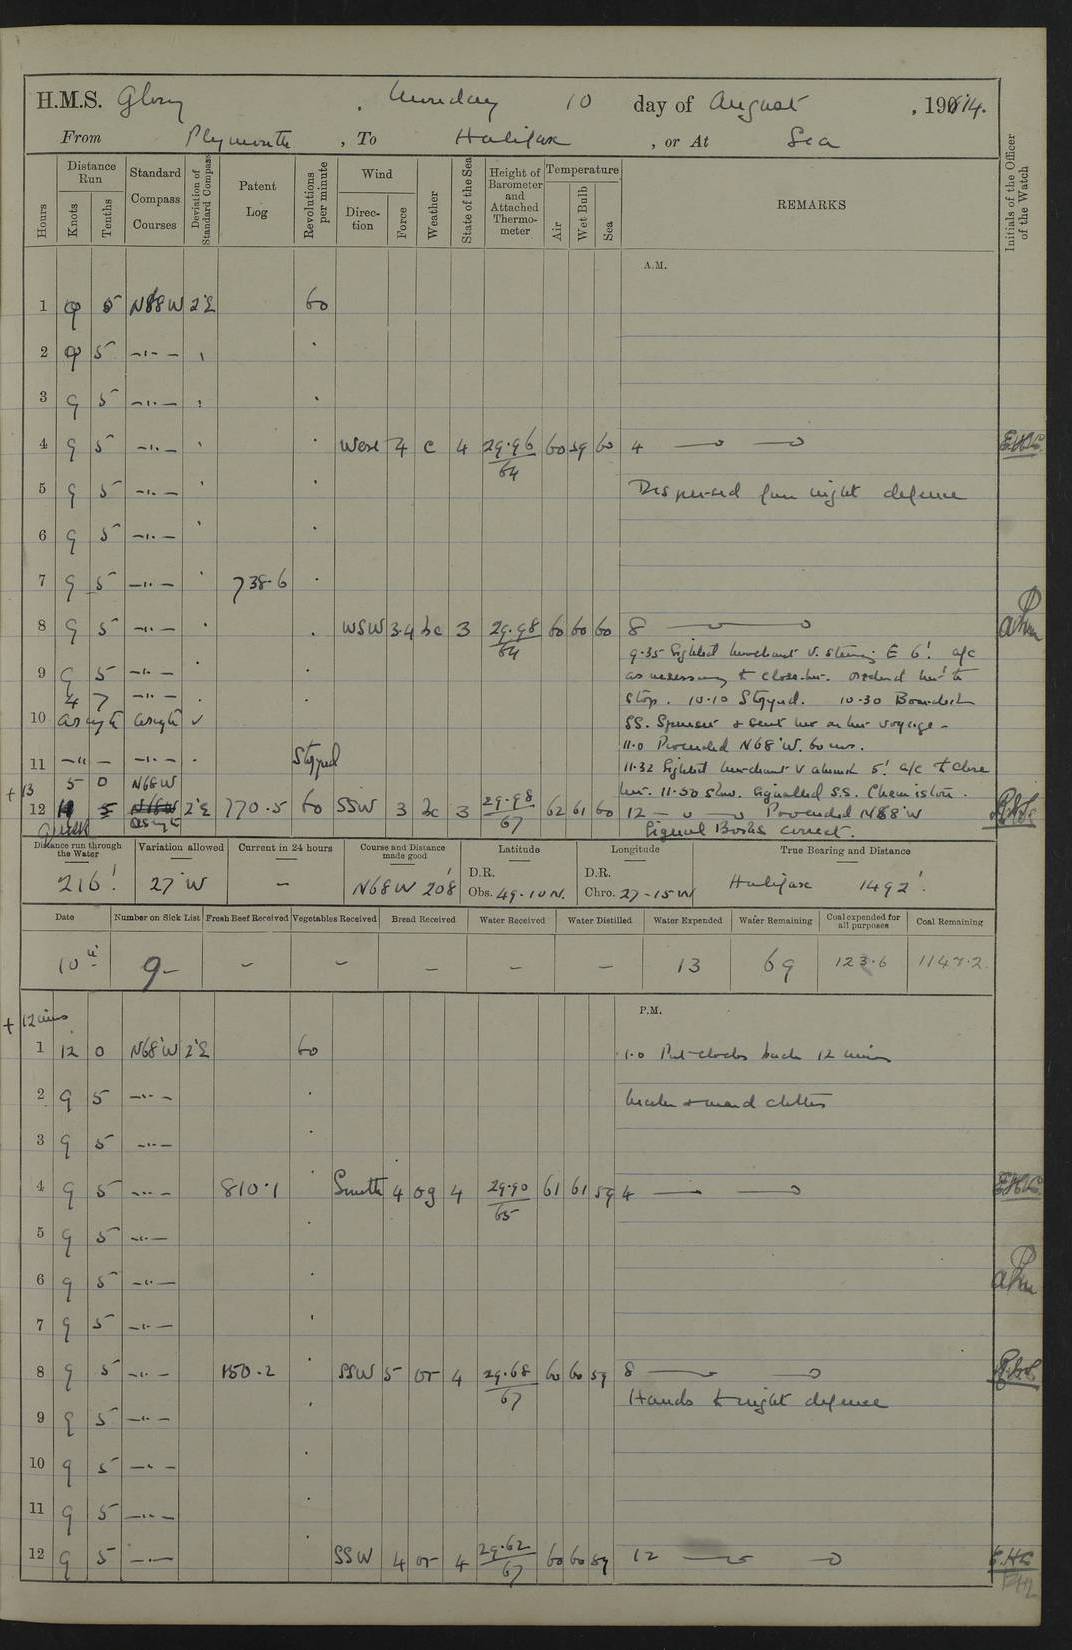 H.M.S. Glory, Monday 10 day of August, 1914.
From Plymouth, To Halifax, or At Sea
Hours
Distance Run
Knots
Tenths
Standard Compass Courses
Deviation of Standard Compass
Patent Log
Revolutions per minute
Wind
Direction
Force
Weather
State of the Sea
Height of Barometer and Attached Thermometer
Temperature
Air
Wet Bulb
Sea
REMARKS
Initials of the Officer of the Watch
A.M.
1 9 5 N68W 2°E 60
2 9 5 -"- '
3 9 5 -"- '
4 9 5 -"- ' West 4 c 4 29.96 64 60 59 60 4
5 9 5 -"- ' Dispersed from night defence
6 9 5 -"- '
7 9 5 -"- ' 738.6
8 9 5 -"- ' WSW 3.4 bc 3 29.98 64 60 60 60 8
9.35 Sighted merchant V. steering E 6'. a/c
9 9 5 -"-
as necessary to close her. Ordered her to
4 7 -"-
stop. 10.10 Stopped. 10.30 Boarded
10 as reqte as reqte
SS. Spenser & sent her on her voyage -
11.0 Proceeded N68°W. 60 revs.
11 -"- -"- Stopped
11.32 Sighted merchant V ahead 5'. a/c to close
+13 5 0 N68W
her. 11.50 slow. Signalled S.S. Chemiston.
12 5 N68W as reqte 2°E 770.5 60 SSW 3 bc 3 29.98 67 62 61 60 12 Proceeded N68°W
Signal Books correct.
Distance run through the Water
Variation allowed
Current in 24 hours
Course and Distance made good
Latitude
Longitude
True Bearing and Distance
216' 27°W - N68W 208' D.R. Obs. 49-10 N. D.R. Chro. 27-15 W Halifax 1492'.
Date
Number on Sick List
Fresh Beef Received
Vegetables Received
Bread Received
Water Received
Water Distilled
Water Expended
Water Remaining
Coal expended for all purposes
Coal Remaining
10th 9 - - - - - - 13 69 123.6 1147.2
P.M.
+ 12 mins
1 12 0 N68°W 2°E 60 1.0 Put clocks back 12 mins
2 9 5 -"- Make & mend clothes
3 9 5 -"-
4 9 5 -"- 810.1 South 4 og 4 29.90 65 61 61 59 4
5 9 5 -"-
6 9 5 -"-
7 9 5 -"-
8 9 5 -"- 150.2 SSW 5 or 4 29.68 67 60 60 59 8
Hands to night defence
9 9 5 -"-
10 9 5 -"-
11 9 5 -"-
12 9 5 -"- SSW 4 or 4 29.62 67 60 60 59 12